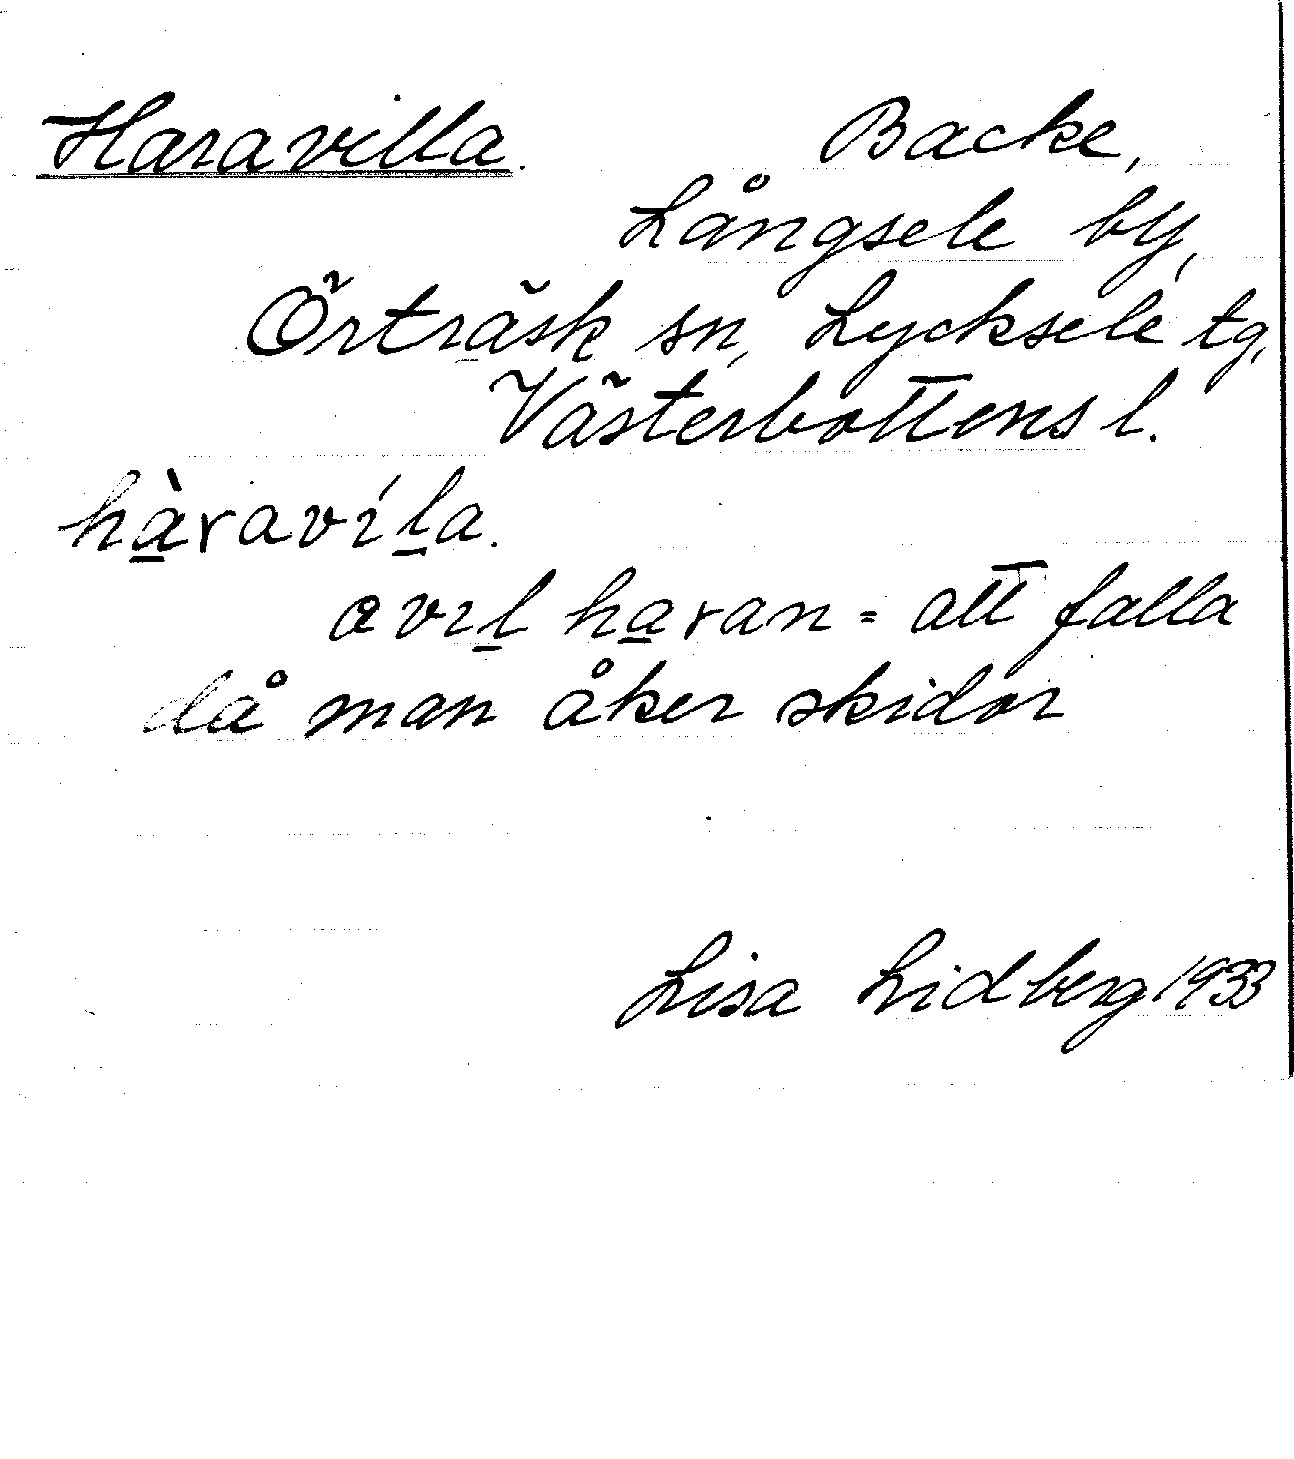 Haravilla. Backe,
Långsele by,
Örträsk sn, Lycksele tg,
Västerbottens l.
hàravíla.
a vıl haran = att falla
då man åker skidor
Lisa Lidberg 1933